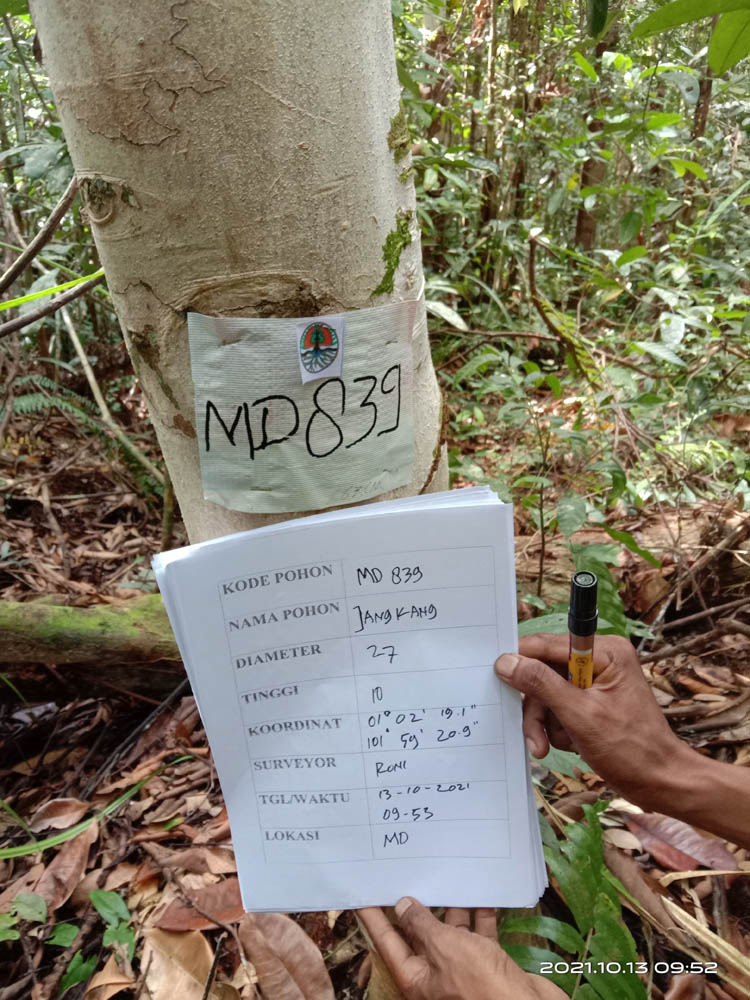 MD 839
KODE POHON MD 839
NAMA POHON JANGKANG
DIAMETER 27
TINGGI 10
KOORDINAT 01° 02' 19.1"
101° 59' 20.9"
SURVEYOR RONI
TGL/WAKTU 13-10-2021
09-53
LOKASI MD
2021.10.13 09:52